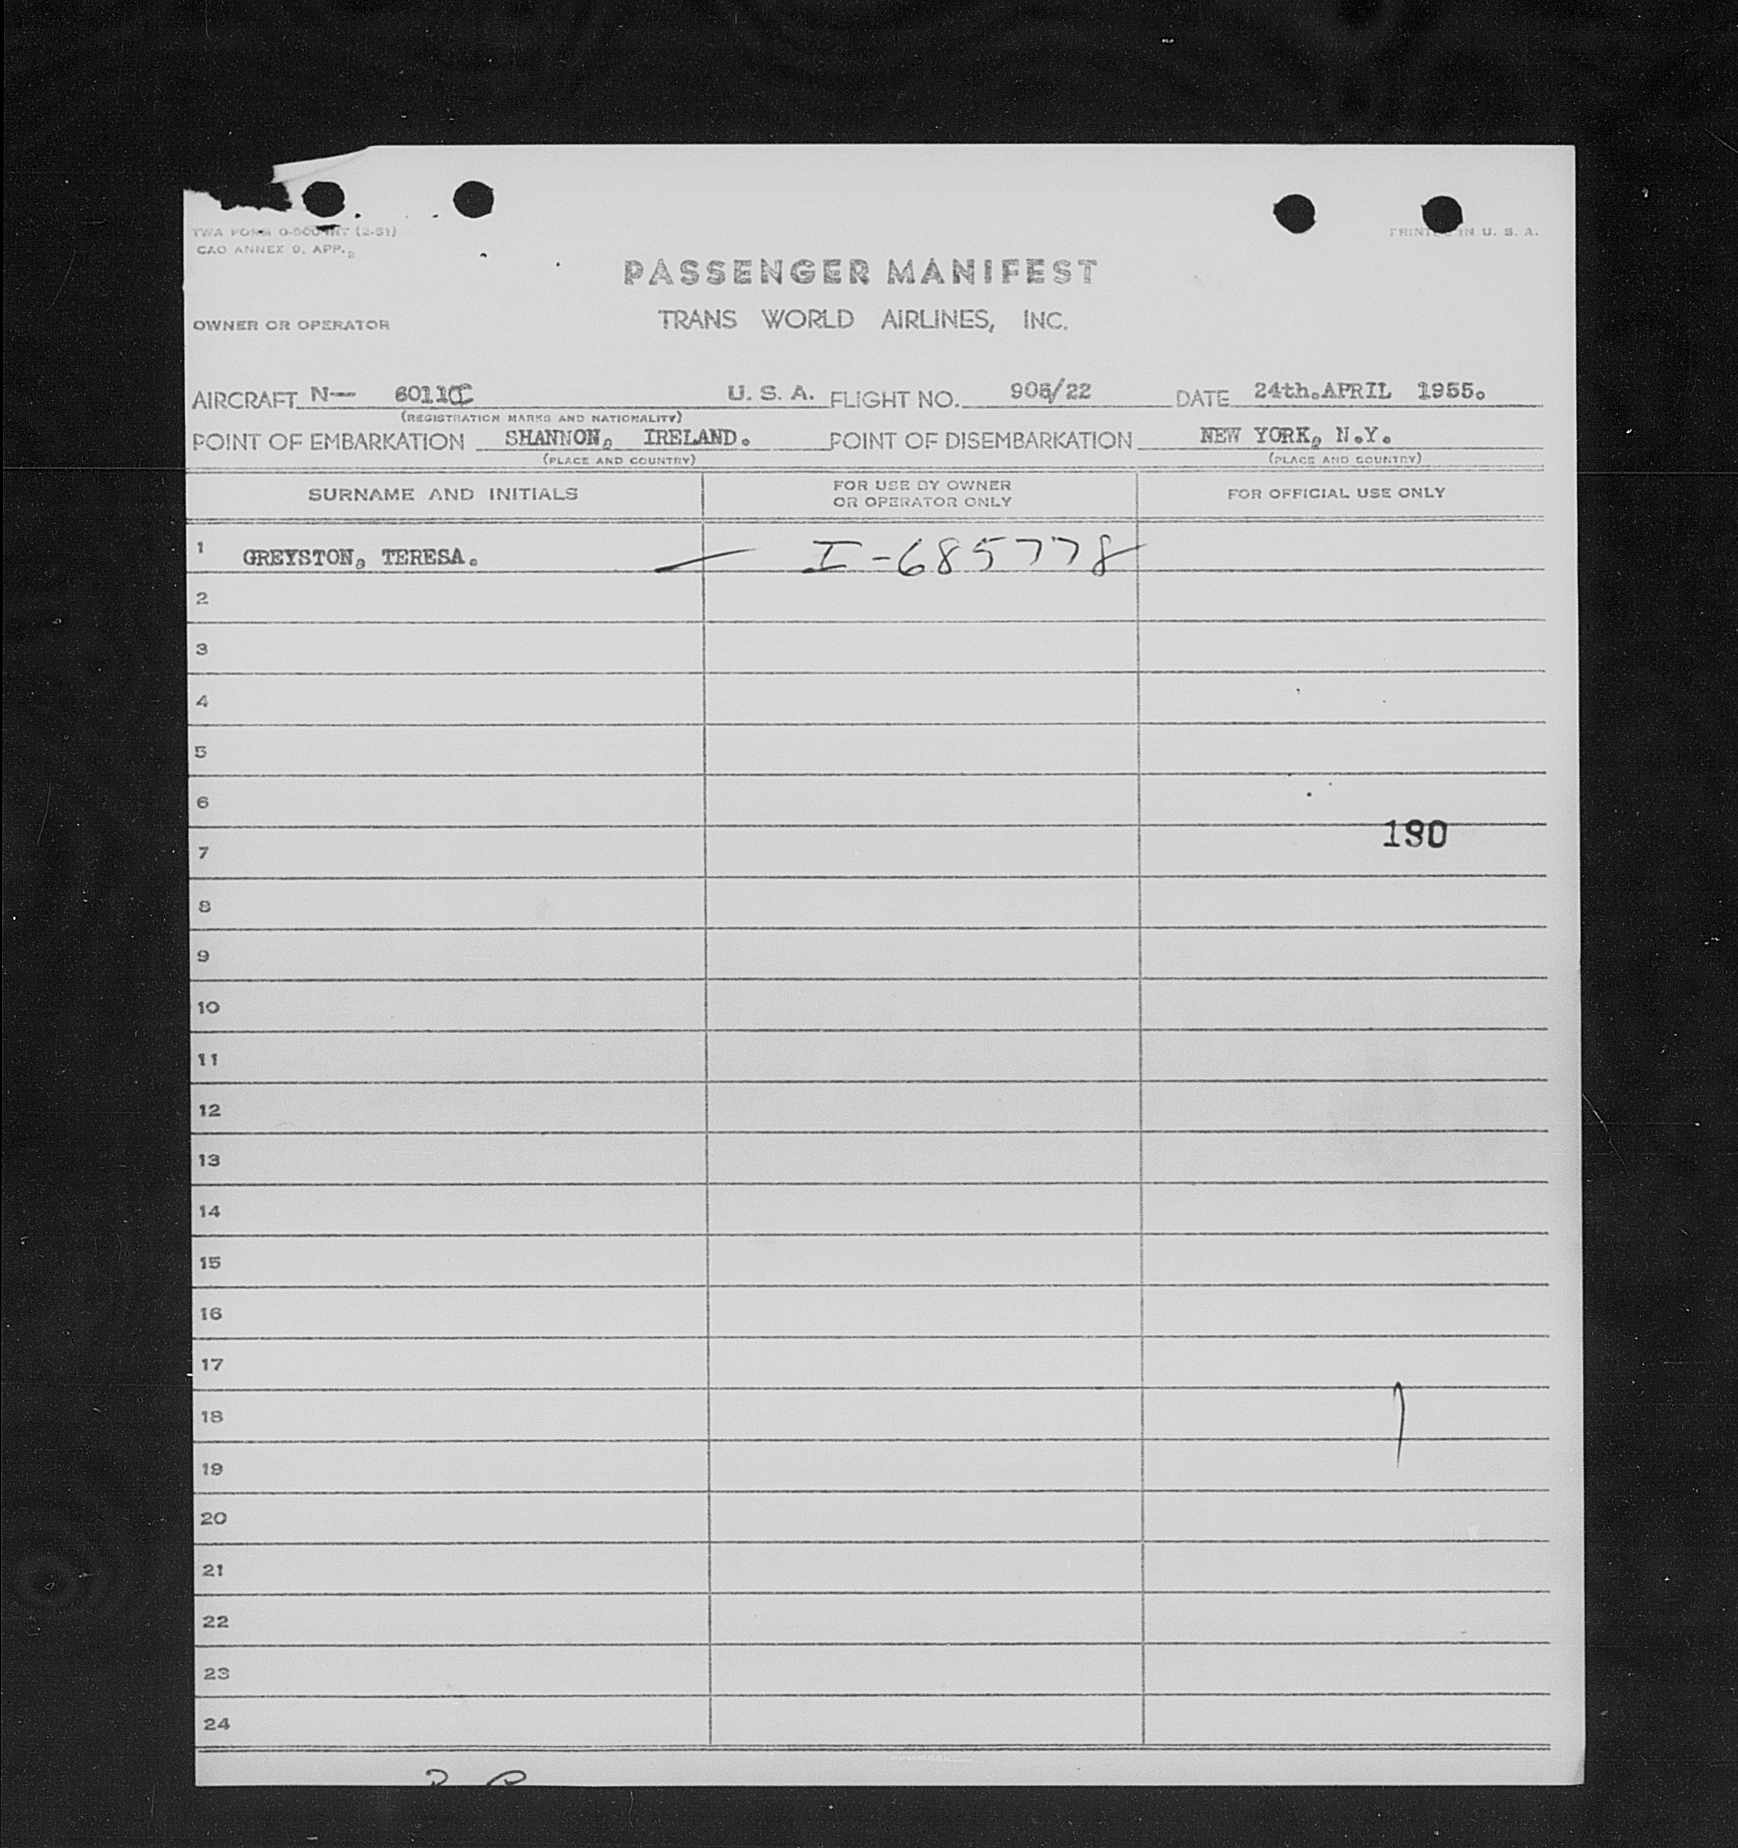 TWA FORM O-500 INT (2-51)
CAO ANNEX 9, APP.
PRINTED IN U. S. A.
PASSENGER MANIFEST
OWNER OR OPERATOR TRANS WORLD AIRLINES, INC.
AIRCRAFT N— 6011C U. S. A. FLIGHT NO. 905/22 DATE 24th.APRIL 1955.
(REGISTRATION MARKS AND NATIONALITY)
POINT OF EMBARKATION SHANNON, IRELAND. POINT OF DISEMBARKATION NEW YORK, N.Y.
(PLACE AND COUNTRY) (PLACE AND COUNTRY)
SURNAME AND INITIALS FOR USE BY OWNER OR OPERATOR ONLY FOR OFFICIAL USE ONLY
1 GREYSTON, TERESA. I-685778
2
3
4
5
6
190
7
8
9
10
11
12
13
14
15
16
17
18
19
20
21
22
23
24